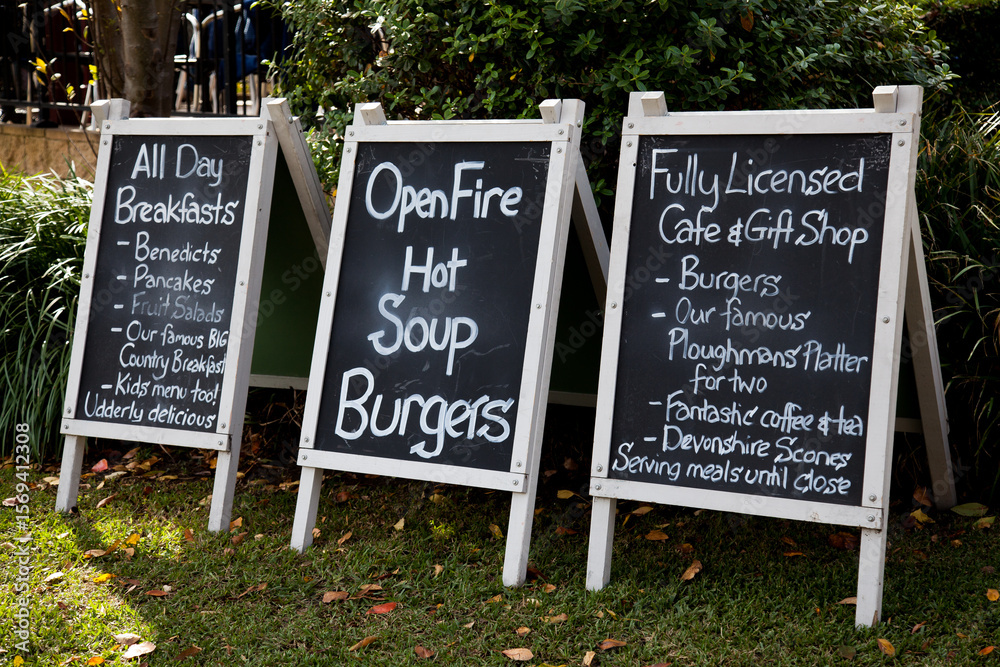 All Day
Breakfasts
- Benedicts
- Pancakes
- Fruit Salads
- Our famous BIG
Country Breakfast
- Kids menu too!
Udderly delicious'
Open Fire
Hot
Soup
Burgers
Fully Licensed
Cafe & Gift Shop
- Burgers
- Our famous
Ploughmans Platter
for two
- Fantastic coffee & tea
- Devonshire Scones
Serving meals until close
1569412308
Adobe Stock